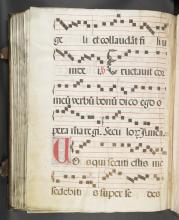 ge li et collaudāt fi li
um de i. Eructavit cor
meū verbū bonū dico ego o
pera mea regi. Seculorū amen.
Vos qui secuti estis me
sedebitis super sedes